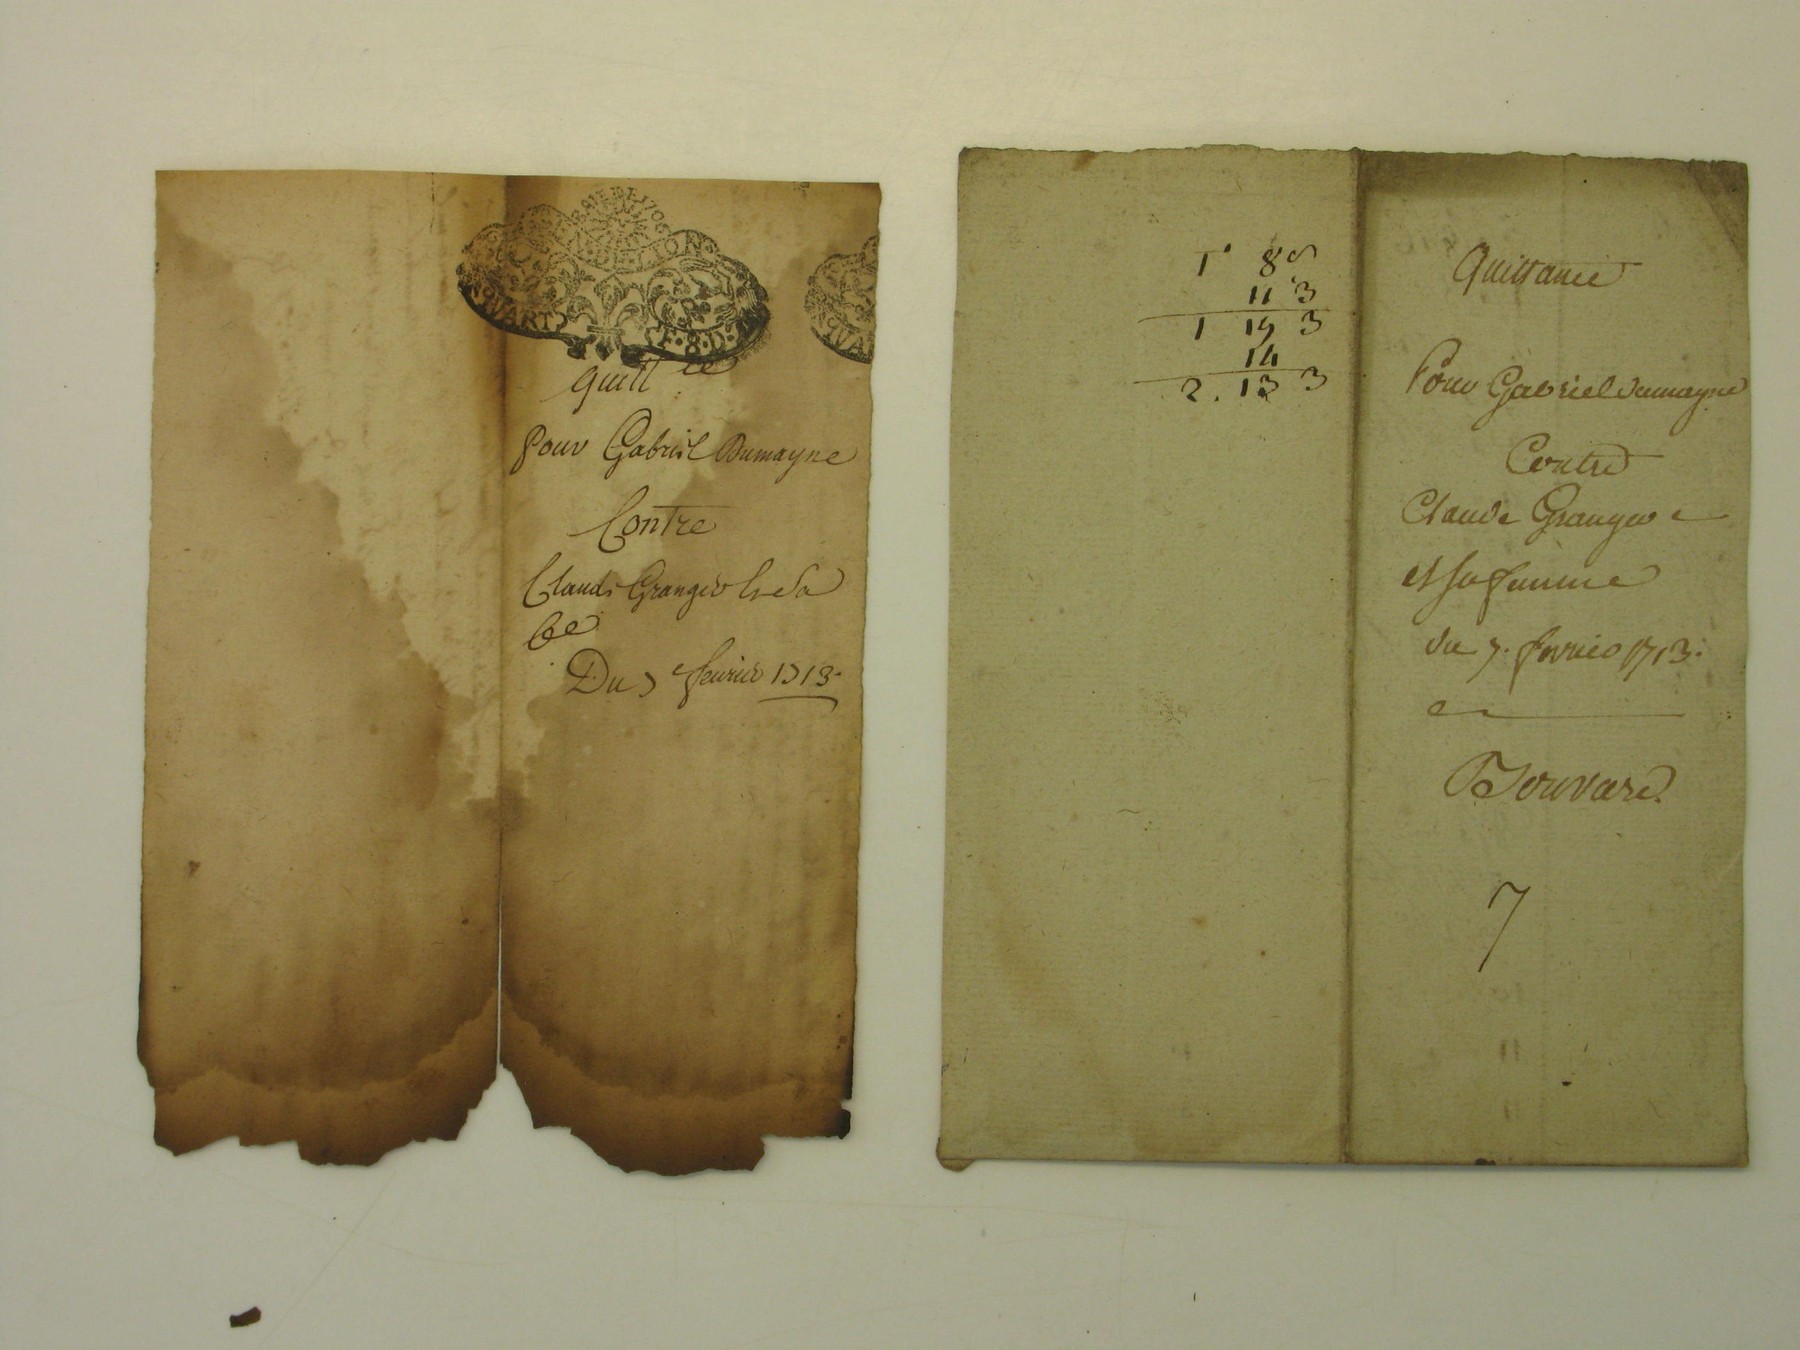 GEN. DE LYON
QUART
F. 8. D.
quitt ce
Pour Gabriel Dumayne
Contre
Claude Granger Et Sa
fe
Du 7e fevrier 1713.
1" 8s
11 3
1 19 3
14
2. 13 3
Quittance
Pour Gabriel dumayne
Contre
Claude Granger
et sa femme
du 7. fevrier 1713.
Bouvard
7